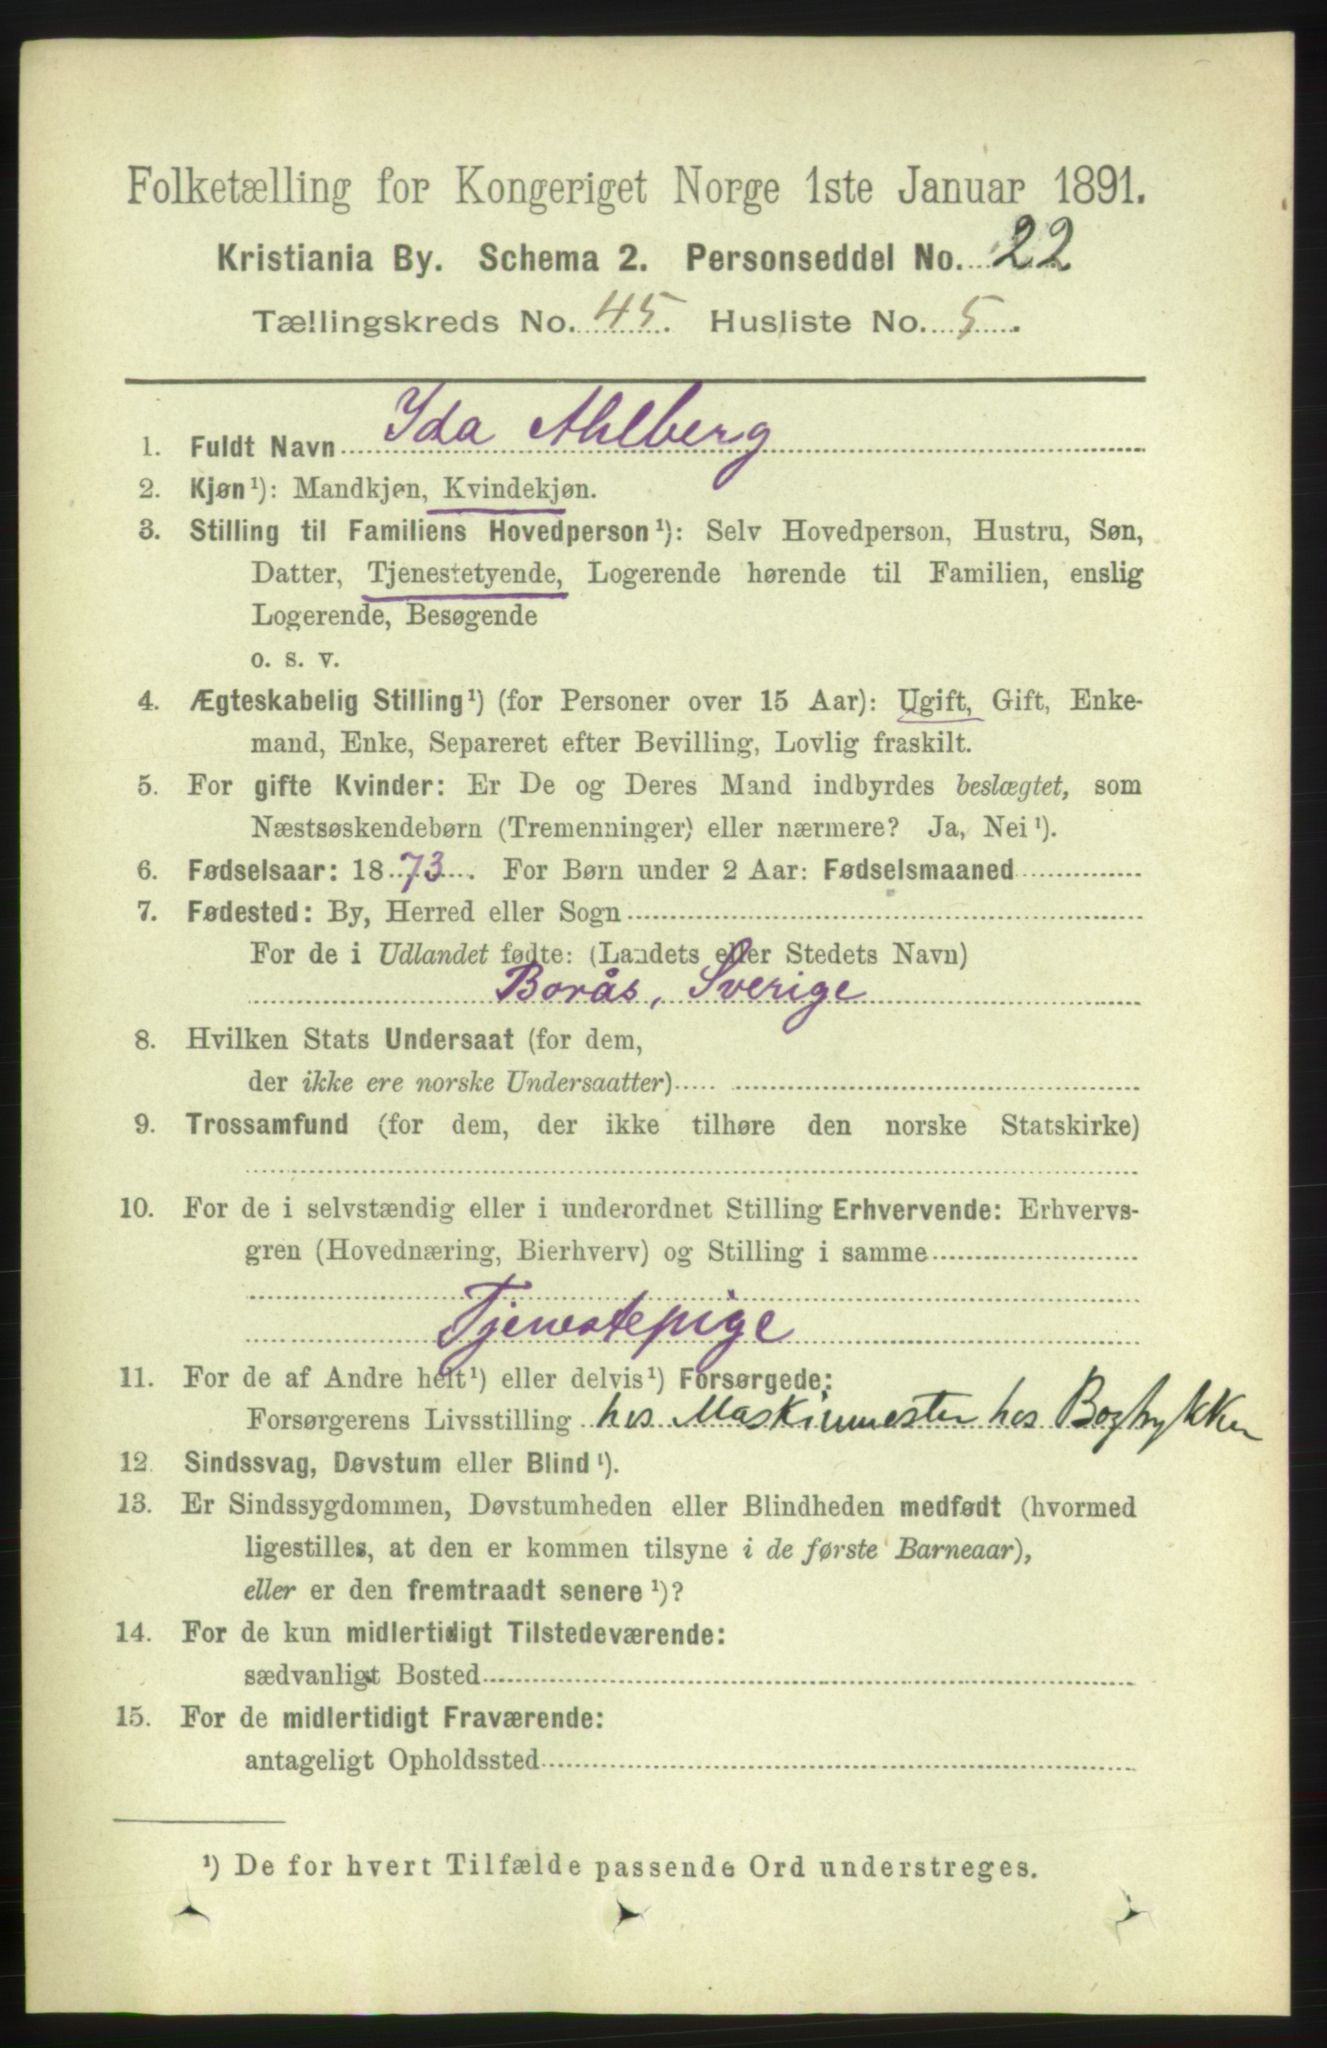 Folketælling for Kongeriget Norge 1ste Januar 1891.
Kristiania By. Schema 2. Personseddel No. 22
Tællingskreds No. 45. Husliste No. 5.
1. Fuldt Navn Ida Ahlberg
2. Kjøn¹): Mandkjøn, Kvindekjøn.
3. Stilling til Familiens Hovedperson¹): Selv Hovedperson, Hustru, Søn,
Datter, Tjenestetyende, Logerende hørende til Familien, enslig
Logerende, Besøgende
o. s. v.
4. Ægteskabelig Stilling¹) (for Personer over 15 Aar): Ugift, Gift, Enke-
mand, Enke, Separeret efter Bevilling, Lovlig fraskilt.
5. For gifte Kvinder: Er De og Deres Mand indbyrdes beslægtet, som
Næstsøskendebørn (Tremenninger) eller nærmere? Ja, Nei¹).
6. Fødselsaar: 1873. For Børn under 2 Aar: Fødselsmaaned
7. Fødested: By, Herred eller Sogn
For de i Udlandet fødte: (Landets eller Stedets Navn)
Borås, Sverige
8. Hvilken Stats Undersaat (for dem,
der ikke ere norske Undersaatter)
9. Trossamfund (for dem, der ikke tilhøre den norske Statskirke)
10. For de i selvstændig eller i underordnet Stilling Erhvervende: Erhvervs-
gren (Hovednæring, Bierhverv) og Stilling i samme
Tjenestepige
11. For de af Andre helt¹) eller delvis¹) Forsørgede:
Forsørgerens Livsstilling hos Maskinmester hos Bogtrykker
12. Sindssvag, Døvstum eller Blind¹).
13. Er Sindssygdommen, Døvstumheden eller Blindheden medfødt (hvormed
ligestilles, at den er kommen tilsyne i de første Barneaar),
eller er den fremtraadt senere¹)?
14. For de kun midlertidigt Tilstedeværende:
sædvanligt Bosted
15. For de midlertidigt Fraværende:
antageligt Opholdssted
¹) De for hvert Tilfælde passende Ord understreges.